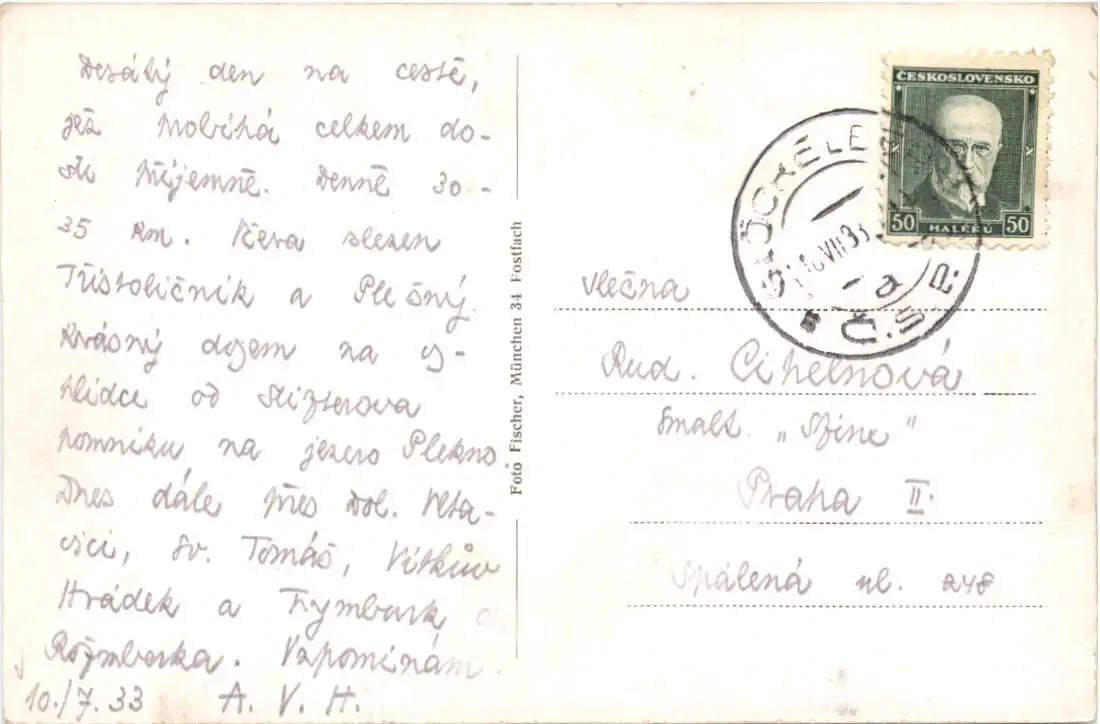 Desátý den na cestě,
jež probíhá celkem do-
sti příjemně. Denně 30-
35 km. Včera slezen
Třístoličník a Plešný.
Krásný dojem na vy-
hlídce od Stifterova
pomníku na jezero Plekno.
Dnes dále přes Dol. Vlta-
vici, Sv. Tomáš, Vítkův
Hrádek a Frymburk d
Rožmberka. Vzpomínám.
10./7. 33 A. V. H.
Foto Fischer, München 34 Postfach
ČESKOSLOVENSKO
50 HALÉŘŮ 50
GLÖCKELBERG
VII 33
a
Č.S.R.
Slečna
Rud. Cihelnová
Smalt.
Praha II.
Spálená ul. 248